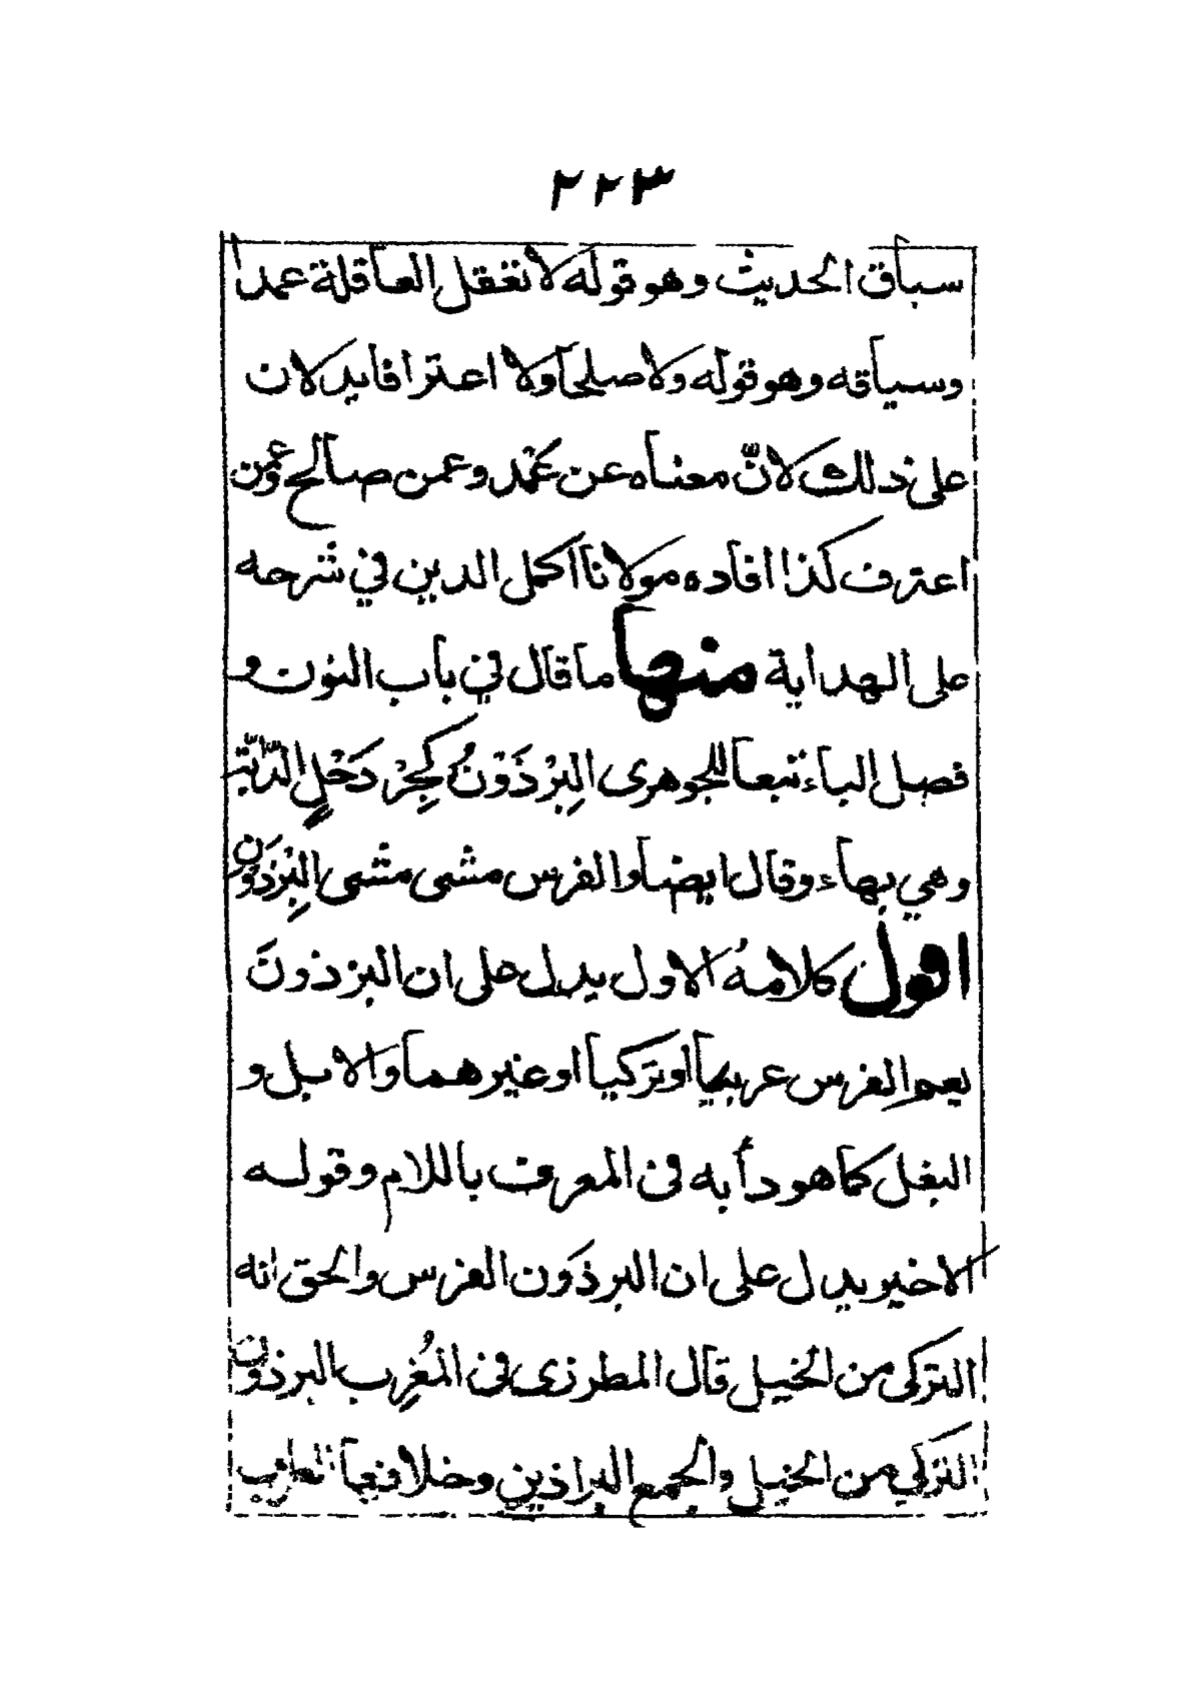 ٢٢٣
سباق الحديث وهو قوله لا تعقل العاقلة عمدا
وسياقه وهو قوله ولا صلحا ولا اعترافا يدلان
على ذلك لانّ معناه عن عمْد وعمن صالح وعمن
اعترف كذا افاده مولانا اكمل الدين في شرحه
على الهداية منها ما قال في باب النون و
فصل الباء تبعا للجوهرى البِرْذَوْنُ كجِرْدَحْلٍ الدّابّة
وهي بهاء وقال ايضا والفرس مشى مشى البِرْذَون
اقول كلامهُ الاول يدل على ان البرذونَ
يعم الفرس عربيا او تركيا او غيرهما والابل و
البغل كما هو دأبه فى المعرف باللام وقوله
الاخير يدل على ان البرذَون الفرس والحق انه
التركى من الخيل قال المطرزى فى المُغرِب البرذون
التركي من الخيل والجمع البراذين وخلافها العراب